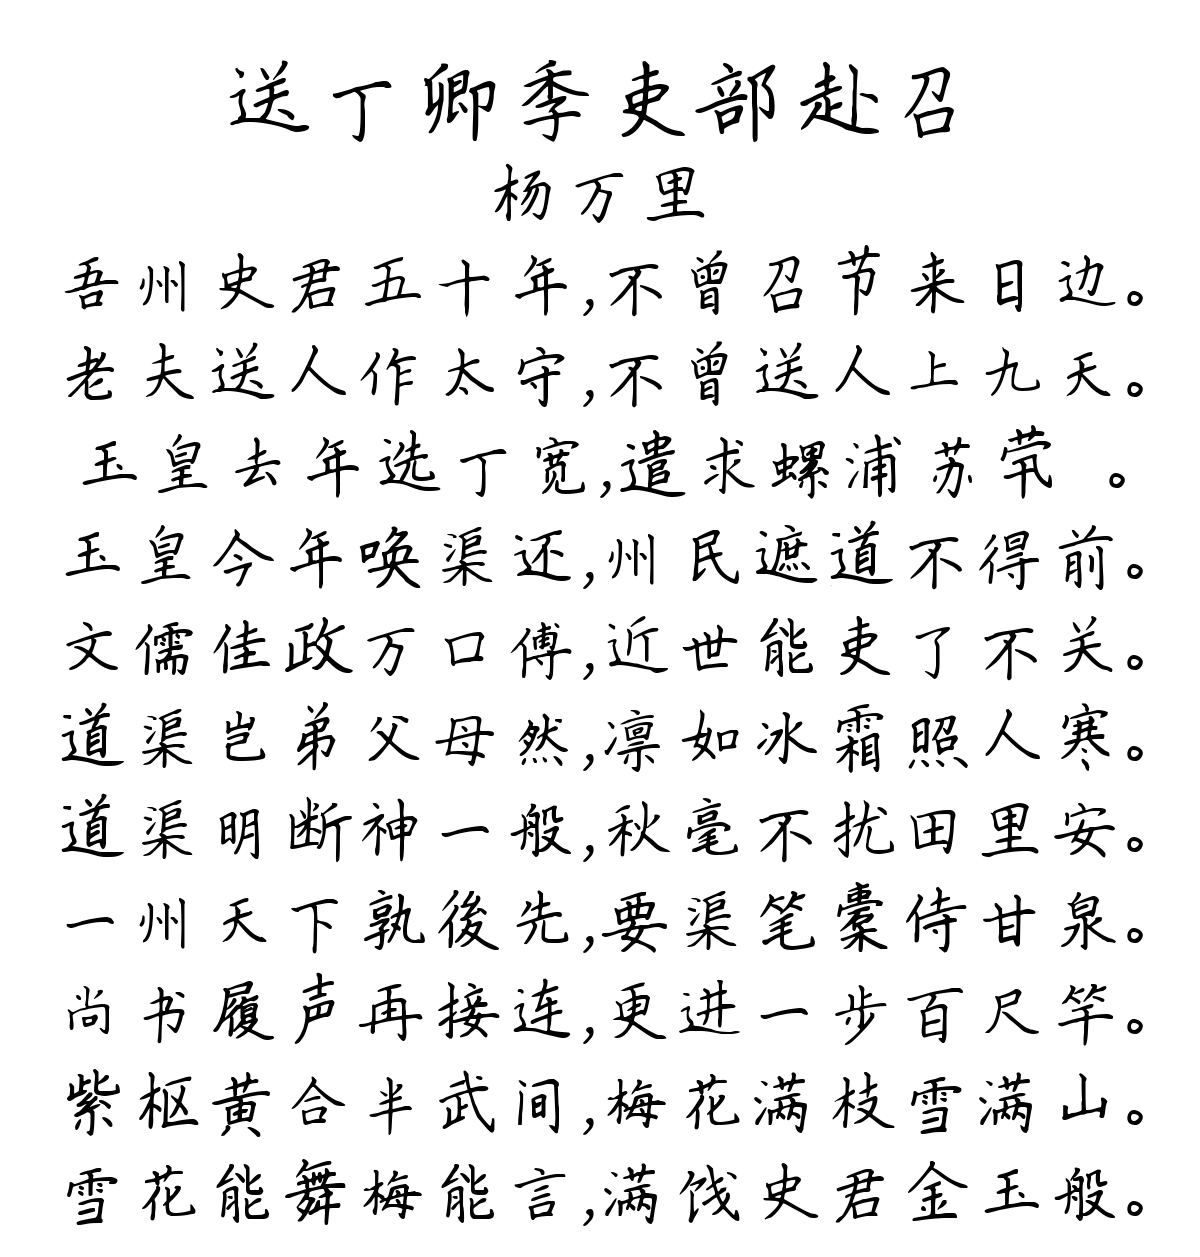 送丁卿季吏部赴召
杨万里
吾州史君五十年,不曾召节来日边。
老夫送人作太守,不曾送人上九天。
玉皇去年选丁宽,遣求螺浦苏茕 。
玉皇今年唤渠还,州民遮道不得前。
文儒佳政万口傅,近世能吏了不关。
道渠岂弟父母然,凛如冰霜照人寒。
道渠明断神一般,秋毫不扰田里安。
一州天下孰後先,要渠笔橐侍甘泉。
尚书履声再接连,更进一步百尺竿。
紫枢黄合半武间,梅花满枝雪满山。
雪花能舞梅能言,满饯史君金玉般。